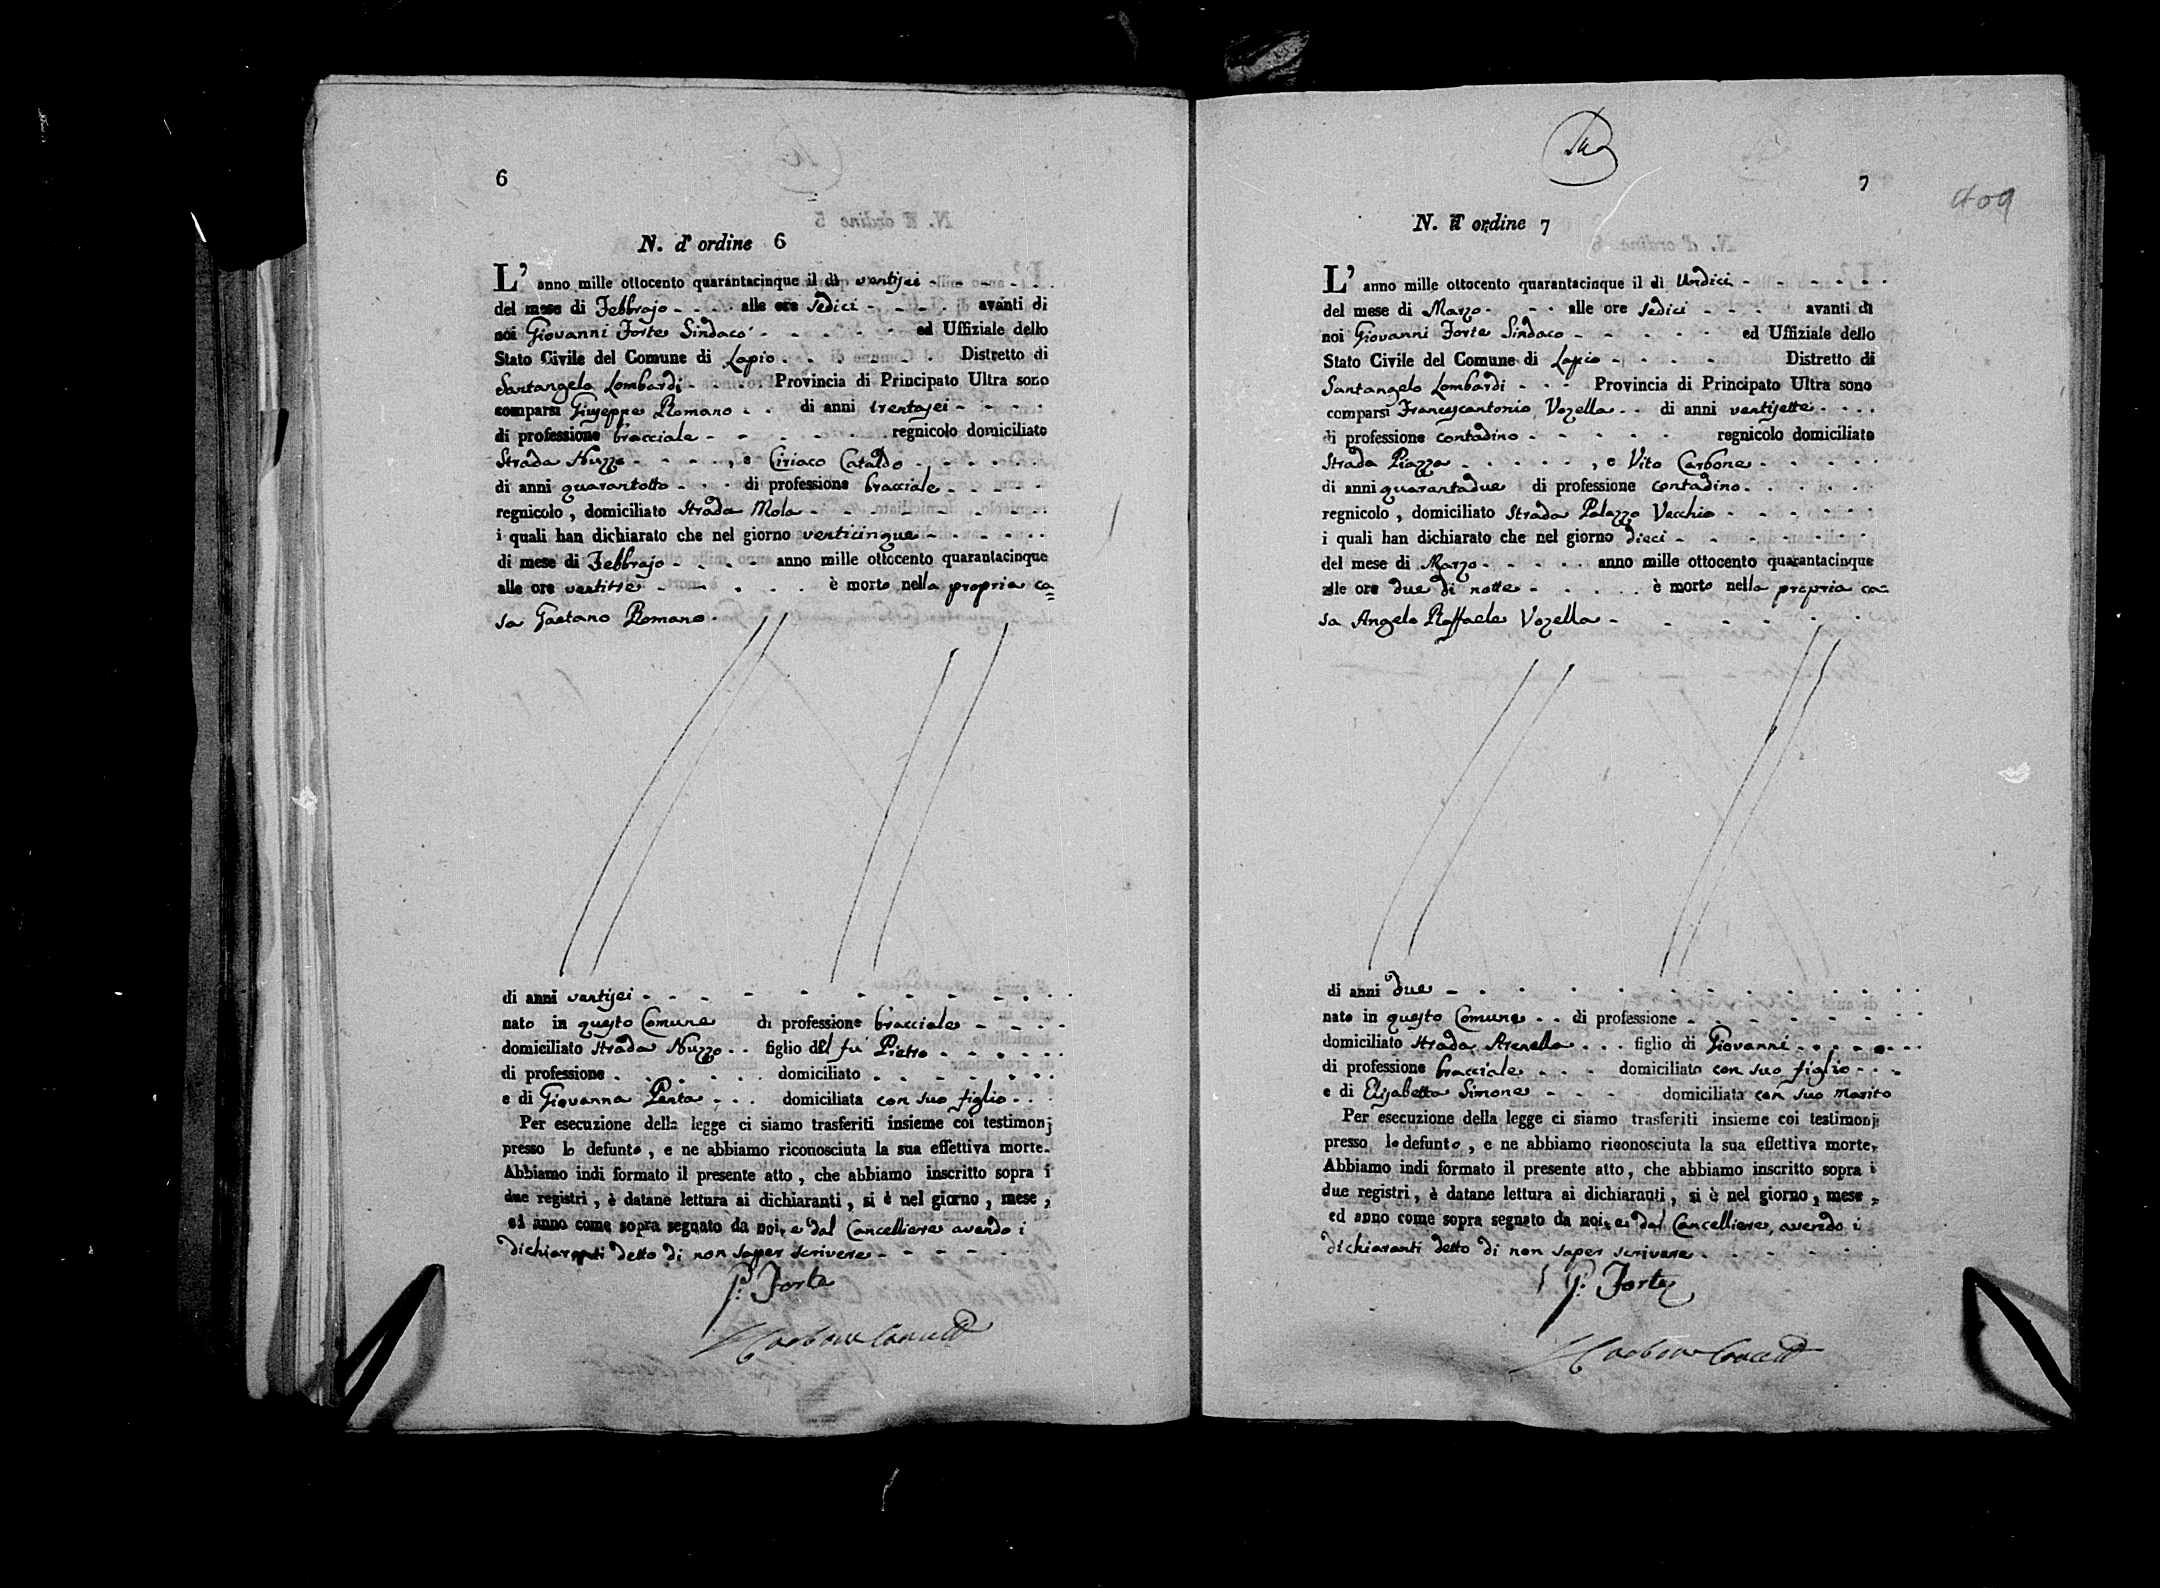 6
N. d' ordine 6
L' anno mille ottocento quarantacinque il dì ventisei
del mese di Febbrajo alle ore sedici avanti di
noi Giovanni Forte Sindaco ed Uffiziale dello
Stato Civile del Comune di Lapio Distretto di
Santangelo Lombardi Provincia di Principato Ultra sono
comparsi Giuseppe Romano di anni trentasei
di professione bracciale regnicolo domiciliato
Strada Nuzzo , e Ciriaco Cataldo
di anni quarantotto di professione bracciale
regnicolo , domiciliato Strada Mola
i quali han dichiarato che nel giorno venticinque
di mese di Febbrajo anno mille ottocento quarantacinque
alle ore ventitre è morto nella propria ca=
sa Gaetano Romano.
di anni ventisei
nato in questo Comune di professione bracciale
domiciliato Strada Nuzzo figlio del fu Pietro
di professione domiciliato
e di Giovanna Penta domiciliata con suo figlio
Per esecuzione della legge ci siamo trasferiti insieme coi testimonj
presso lo defunto , e ne abbiamo riconosciuta la sua effettiva morte.
Abbiamo indi formato il presente atto , che abbiamo inscritto sopra i
due registri , è datane lettura ai dichiaranti , si è nel giorno , mese ,
ed anno come sopra segnato da noi, e dal Cancelliere avendo i
dichiaranti detto di non saper scrivere
G: Forte
7
409
N. d' ordine 7
L' anno mille ottocento quarantacinque il dì Undici
del mese di Marzo alle ore sedici avanti di
noi Giovanni Forte Sindaco ed Uffiziale dello
Stato Civile del Comune di Lapio Distretto di
Santangelo Lombardi Provincia di Principato Ultra sono
comparsi Francescantonio Vozella di anni ventisette
di professione contadino regnicolo domiciliato
Strada Piazza , e Vito Carbone
di anni quarantadue di professione contadino
regnicolo , domiciliato Strada Palazzo Vecchio
i quali han dichiarato che nel giorno dieci
del mese di Marzo anno mille ottocento quarantacinque
alle ore due di notte è morto nella propria ca=
sa Angelo Raffaele Vozella
di anni due
nato in questo Comune di professione
domiciliato Strada Arenella figlio di Giovanni
di professione bracciale domiciliato con suo figlio
e di Elisabetta Simone domiciliata con suo marito
Per esecuzione della legge ci siamo trasferiti insieme coi testimonj
presso lo defunto , e ne abbiamo riconosciuta la sua effettiva morte.
Abbiamo indi formato il presente atto , che abbiamo inscritto sopra i
due registri , è datane lettura ai dichiaranti , si è nel giorno , mese ,
ed anno come sopra segnato da noi, e dal Cancelliere, avendo i
dichiaranti detto di non saper scrivere
G: Forte